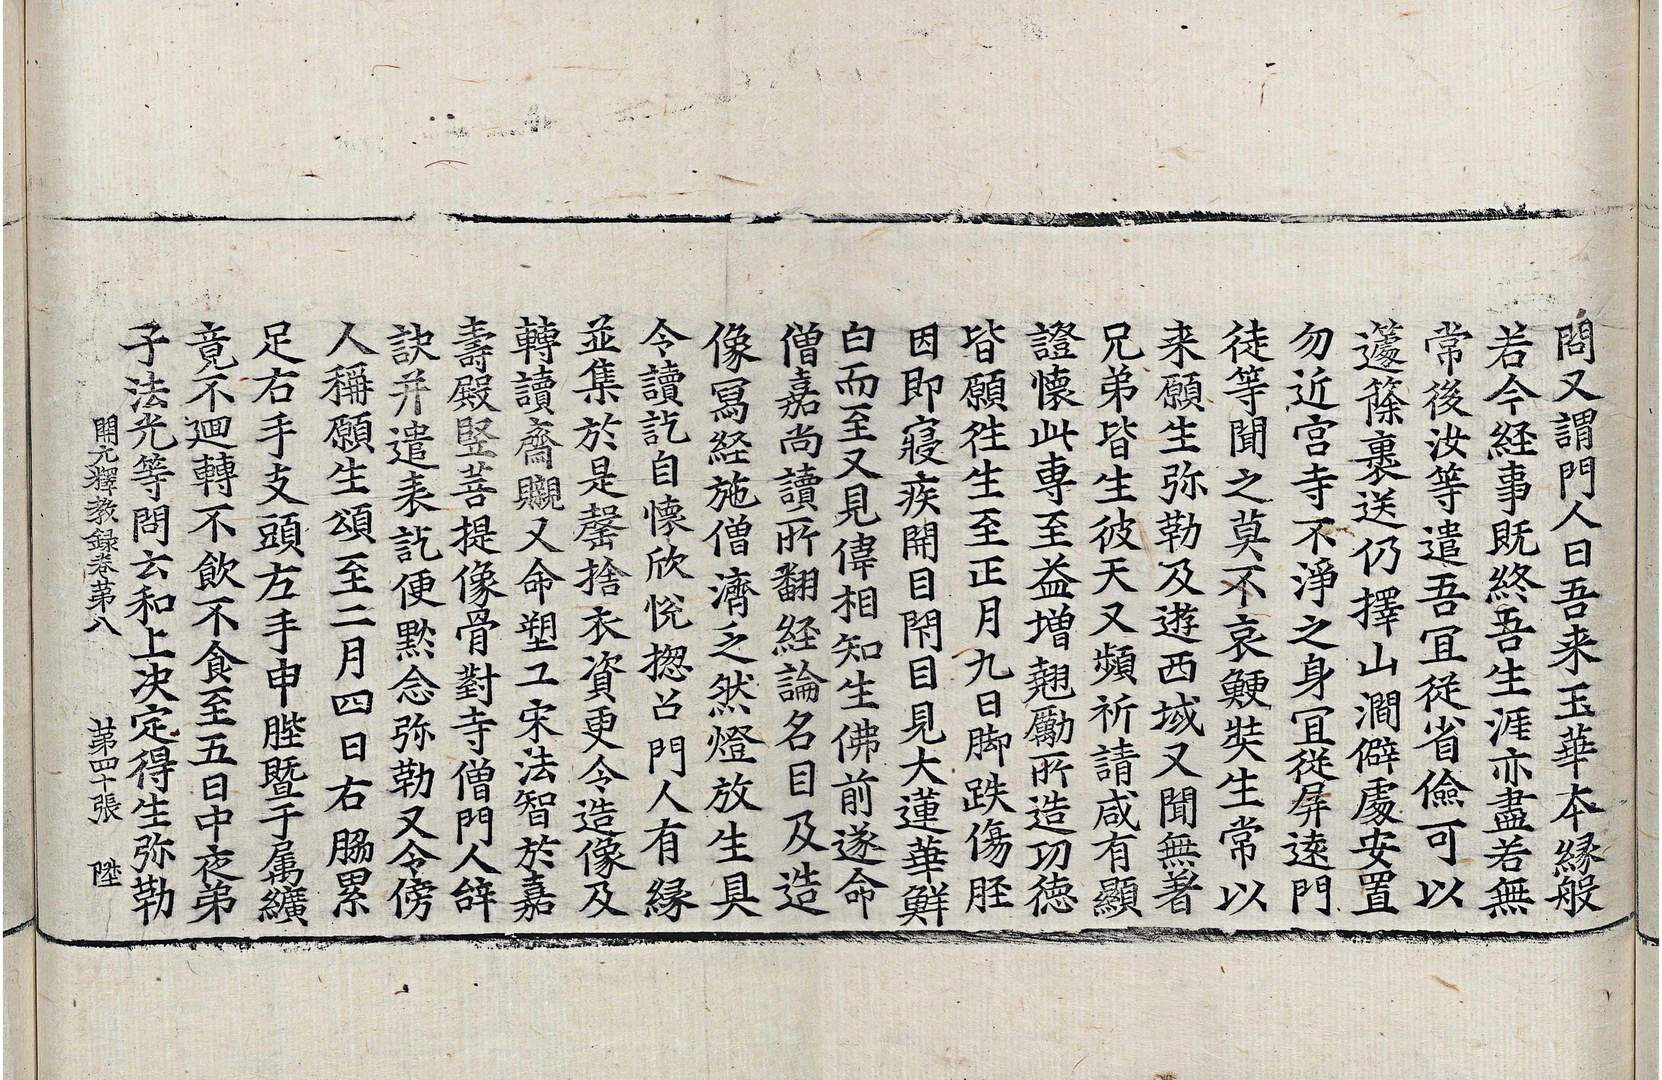 問又謂門人曰吾来玉華本縁般
若今経事既終吾生涯亦盡若無
常後汝等遣吾宜従省儉可以
蘧篨裹送仍擇山澗僻處安置
勿近宮寺不淨之身宜従屏逺門
徒等聞之莫不哀鯁奘生常以
来願生弥勒及遊西域又聞無著
兄弟皆生彼天又頻祈請咸有顯
證懷此専至益增翹勵所造功徳
皆願徃生至正月九日脚跌傷胫
因即寢疾開目閇目見大蓮華鮮
白而至又見偉相知生佛前遂命
僧嘉尚讀所翻経論名目及造
像冩経施僧濟乏然燈放生具
令讀訖自懷欣恱揔召門人有縁
並集於是罄捨衣資更令造像及
轉讀齋嚫又命塑工宋法智於嘉
壽殿竪菩提像骨對寺僧門人辝
訣并遣表訖便黙念弥勒又令傍
人稱願生頌至二月四日右脇累
足右手支頭左手申髀暨于属纊
竟不迴轉不飲不食至五日中夜弟
子法光等問云和上决定得生弥勒
開元釋教録卷苐八 苐四十張 陞